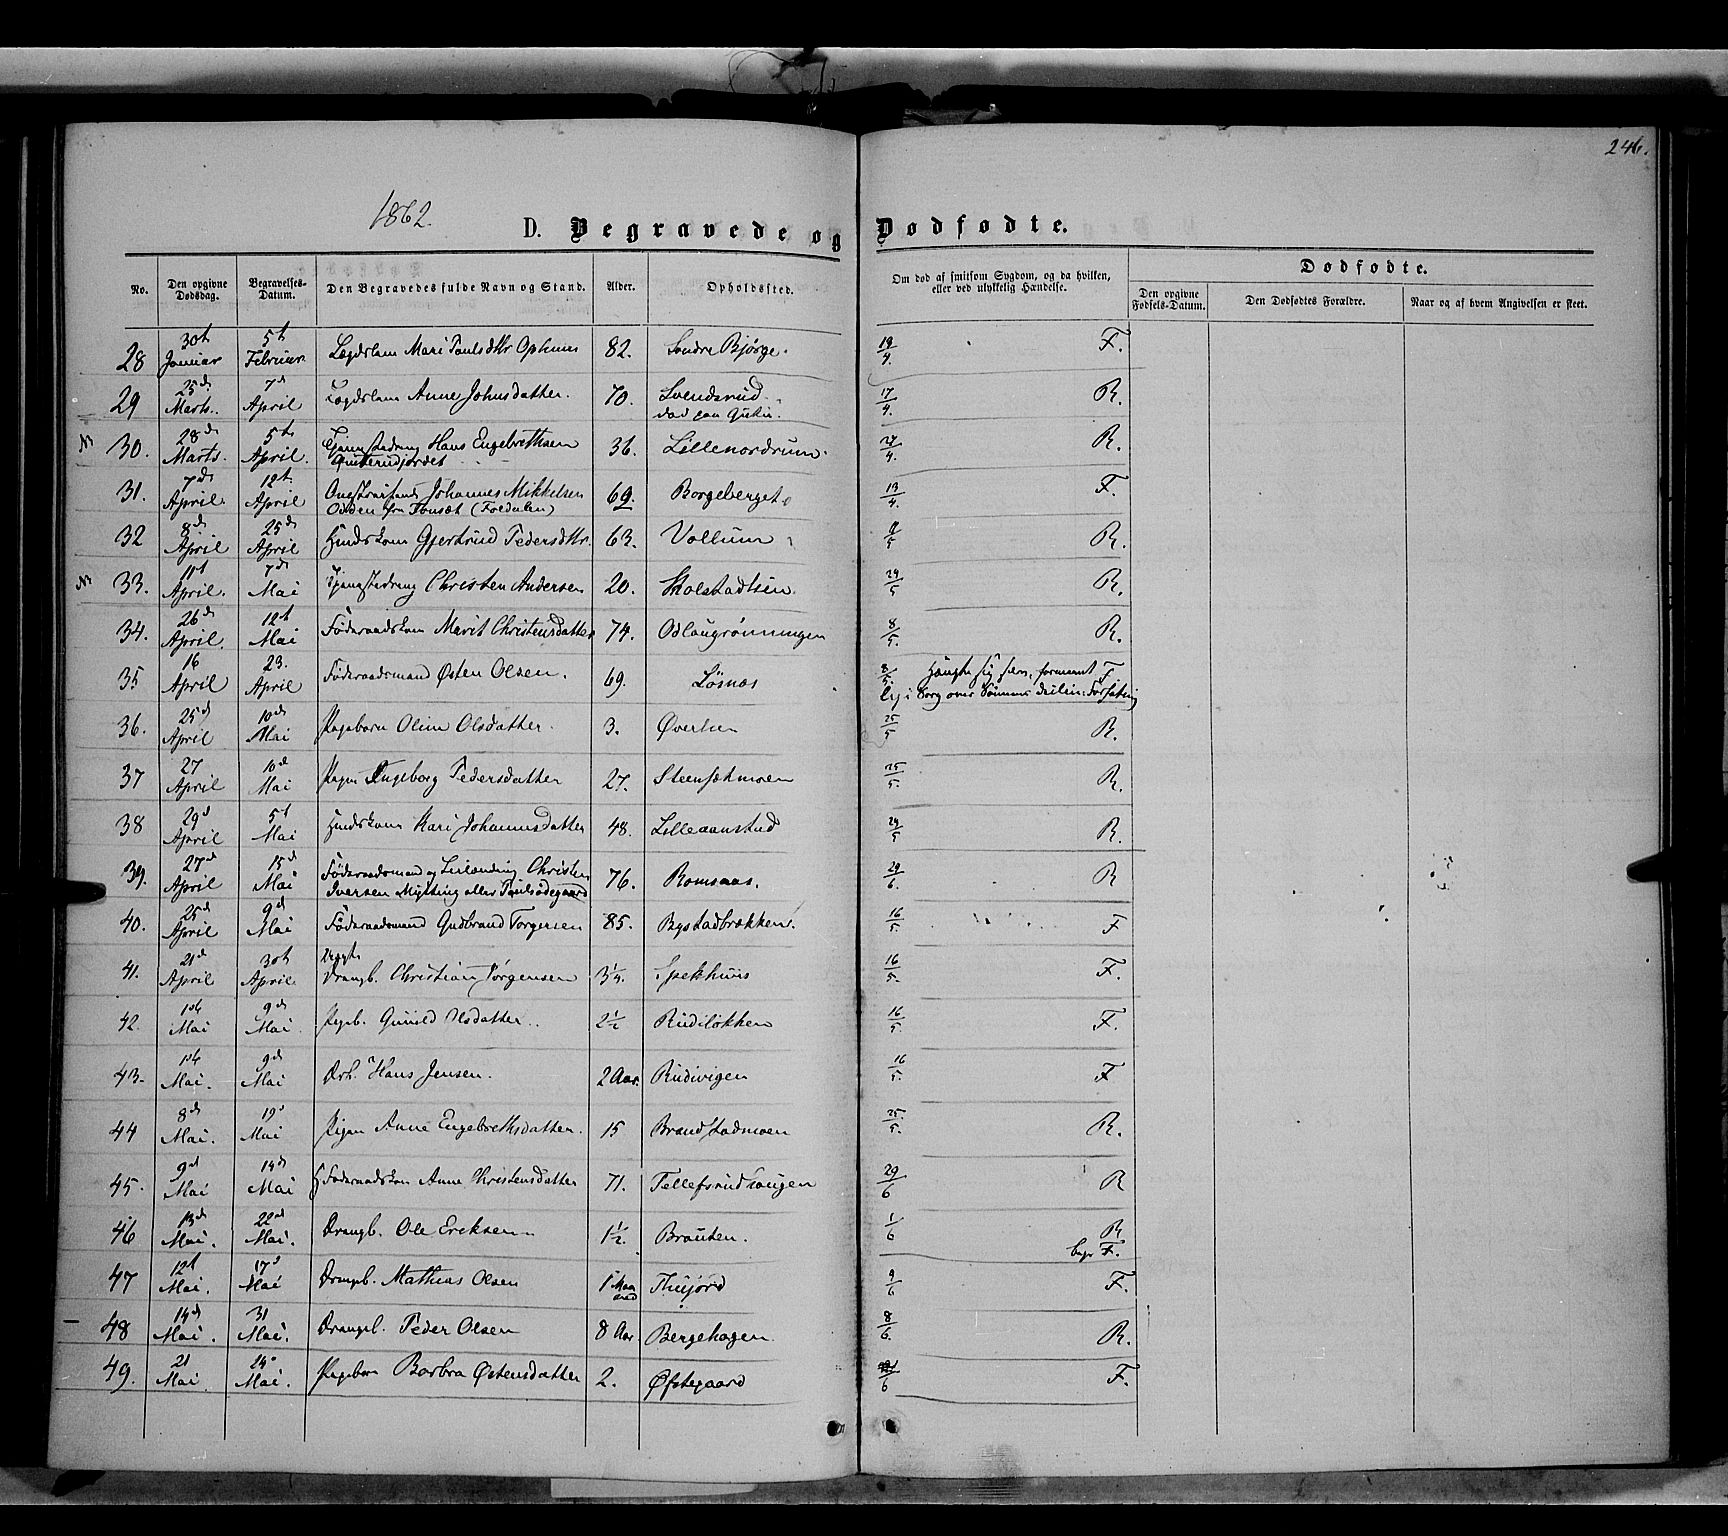 246.
1862.
D. Begravede og Dødfødte.
No.
Den opgivne Dødsdag.
Begravelses-Datum.
Den Begravedes fulde Navn og Stand.
Alder.
Opholdssted.
Om død af smitsom Sygdom, og da hvilken, eller ved ulykkelig Hændelse.
Dødfødte.
Den opgivne Fødsels-Datum.
Den Dødfødtes Forældre.
Naar og af hvem Angivelsen er skeet.
28 30te Januar 5te Februar Lægdslem Mari Poulsdttr 82. Søndre Bjørge. 19/4. F.
29 25de Marts. 7de April Lægdslem Anne Johnsdatter. 70. Svendsrud 17/4. R.
30. 28de Marts. 5te April. Hans Engebrethsen 36. Lillenordrum. 27/4. R.
31. 7de April. 12te April Johannes Mikkelsen 69 Borgeberget. 13/4. F.
Odden fra Tonsæt (Foldalen)
32 8de April 25de April Gjertrud Pedersdttr. 63. Vollum 2/5 R.
33. 11te April. 7de Mai Christen Andersen 20. Skolstadlien. 24/5 R.
34. 26de April. 12te Mai Føderaadskone Marit Christensdatter 74. Odlaugrønningen 8/5. R.
35 16 April 23. April Føderaadsmand Østen Olsen. 69. Løsnæs 8/5. Hængte sig selv, F.
Sorg over Sønnens
36. 25de April 10de Mai Pigebarn Oline Olsdatter. 3. Øverlien 25/5 R.
37 27 April 10de Mai Pigen Ingeborg Pedersdatter 27. Steensetmoen 25/5. R.
38 29de April 5te Mai Kari Johannesdatter 48. Lilleaanstad 24/5 R.
39. 27de April 15de Mai Føderaadsmand og Leilænding Christen 76. Romsaas. 29/6. R
Iversen Mytting eller Poulsødegaard
40. 25de April 9de Mai Føderaadsmand Gudbrand Torgersen 85. Bystadbrækken. 16/5. F
41. 21de April 30te April Drengb. Christian Jørgensen 3 1/4. Spekhuus 16/5. F.
42. 1ste Mai 9de Mai. Pigeb. Gunild Olsdatter. 2 1/2 Rudiløkken 16/5. F.
43. 1ste Mai. 9de Mai Hans Jensen. 2 Aar. Rudivigen 16/5. F
44 8de Mai. 19de Mai Pigen Anne Engebrethsdatter. 15 Brandstadmoen 25/5. R.
45. 9de Mai 14de Mai Føderaadskone Anne Christensdatter 71. Tellefsrudhaugen 29/6 R
46 13de Mai. 22de Mai. Drengb. Ole Ericksen 1 1/2. Bråuten. 1/6 R
begr F.
47 12te Mai. 17de Mai Drengeb. Mathias Olsen 1 Maaned Thujord 9/6 F.
48 14de Mai. 31 Mai. Drengeb. Peder Olsen 8 Aar. Bergehagen. 8/6. R.
49. 21 Mai. Mai. Pigebarn Barbra Østensdatter 2. Øfstegaard /6 F.